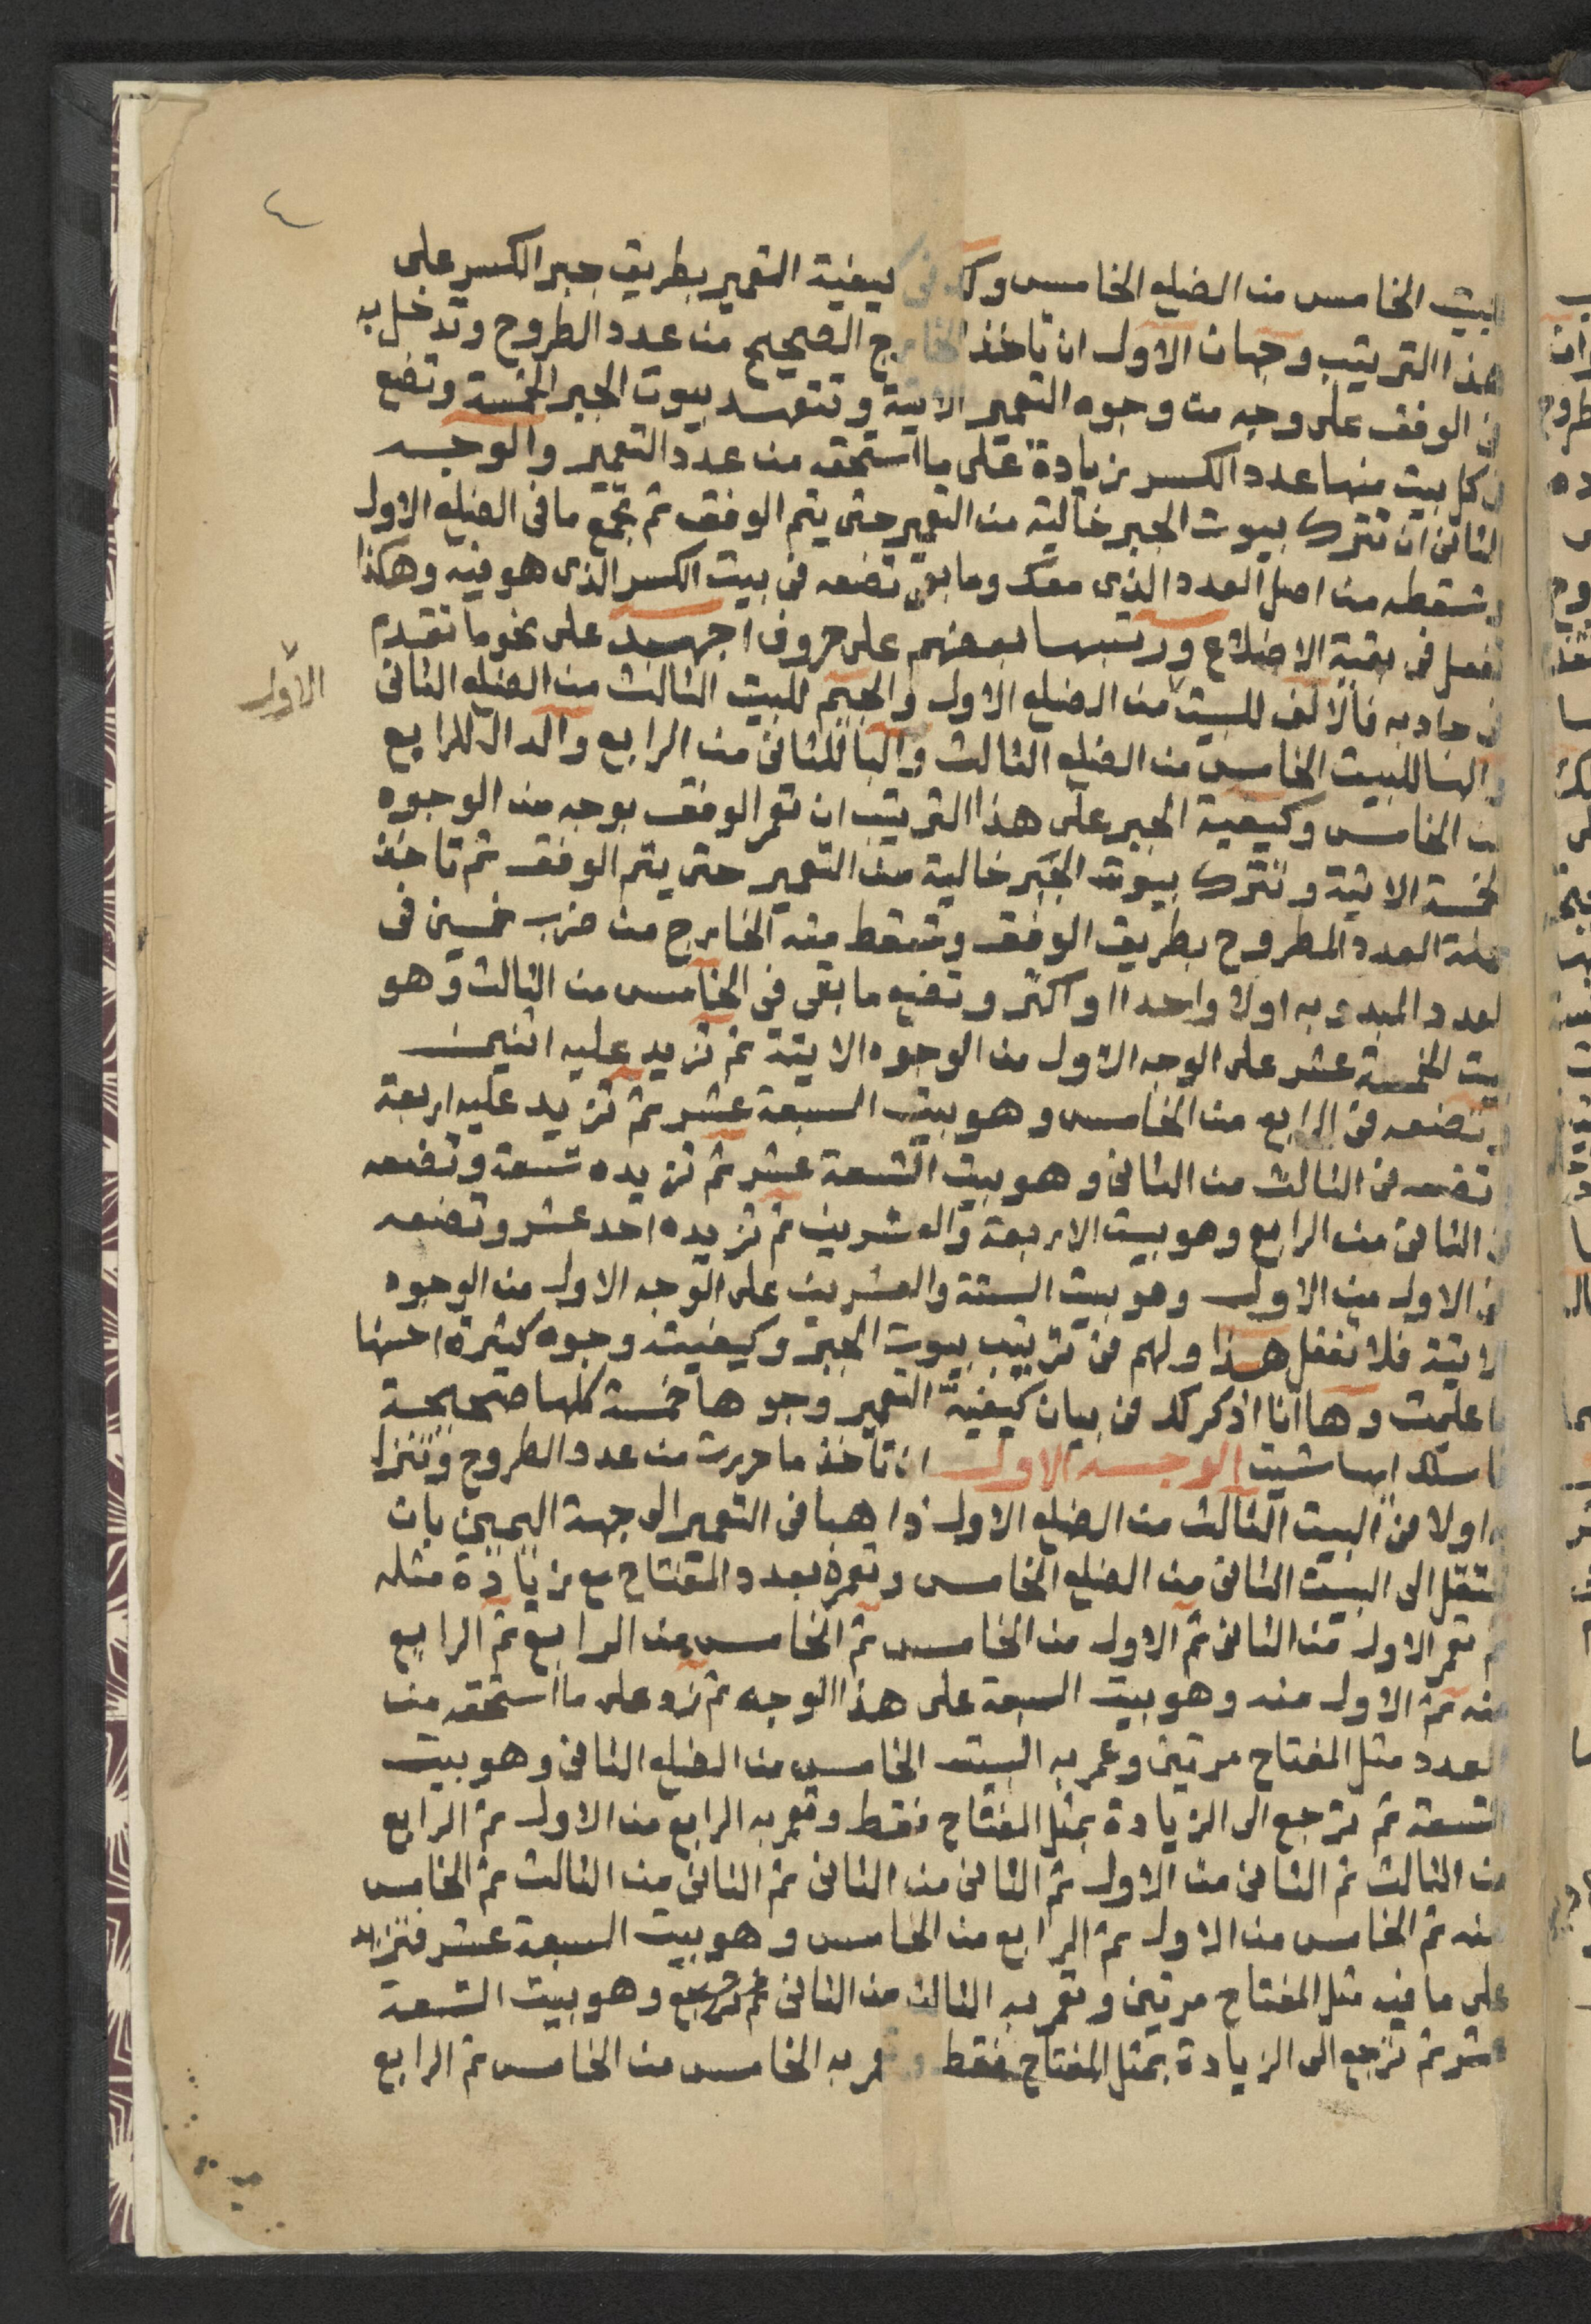 ٤
البيت الخامس من الضلع الخامس ولك في كيفية التعمير بطريق جبر الكسر على
هذا الترتيب وجهان الاول ان تاخذ الخارج الصحيح من عدد الطروح وتدخل به
في الوفق على وجه من وجوه التعمير الاتية وتتعهد بيوت الجبر الخمسة وتضع
في كل بيت منها عدد الكسر زيادة على ما استحقه من عدد التعمير والوجه
الثاني ان تترك بيوت الجبر خالية من التعمير حتى يتم الوفق ثم تجمع ما في الضلع الاول
وتسقطه من اصل العدد الذي معك وما بقي تضعه في بيت الكسر الذي هو فيه وهكذا
تفعل في بقية الاضلاع ورتبها بعضهم على حروف اجهبد على نحو ما تقدم
في جادبه فالالف للبيت من الضلع الاول والجيم للبيت الثالث من الضلع الثاني
الاول
والها للبيت الخامس من الضلع الثالث والبا للثاني من الرابع والدال للرابع
من الخامس وكيفية الجبر على هذا الترتيب ان تعمر الوفق بوجه من الوجوه
الخمسة الاتية وتترك بيوت الجبر خالية من التعمير حتى يتم الوفق ثم تاخذ
جملة العدد المطروح بطريق الوفق وتسقط منه الخارج من ضرب خمسين في
العدد المبدو به اولا واحدا او اكثر وتضع ما بقي في الخامس من الثالث وهو
بيت الخمسة عشر على الوجه الاول من الوجوه الاتية ثم تزيد عليه اثنين
وتضعه في الرابع من الخامس وهو بيت السبعة عشر ثم تزيد عليه اربعة
وتضعه في الثالث من الثاني وهو بيت التسعة عشر ثم تزيده تسعة وتضعه
في الثاني من الرابع وهو بيت الاربعة والعشرين ثم تزيده احد عشر وتضعه
في الاول من الاول وهو بيت الستة والعشرين على الوجه الاول من الوجوه
الاتية فلا تغفل هذا ولهم في ترتيب بيوت الجبر وكيفيته وجوه كثيرة احسنها
ما علمت وها انا اذكر لك في بيان كيفية التعمير وجوها خمسة كلها صحيحة
فاسلك ايها شيت الوجه الاول ان تاخذ ما حررت من عدد الطروح وتنزل
به اولا في البيت الثالث من الضلع الاول ذاهبا في التعمير الى جهة اليمين بان
تنتقل الى البيت الثاني من الضلع الخامس وتعمره بعدد المفتاح مع زيادة مثله
ثم تعمر الاول من الثاني ثم الاول من الخامس ثم الخامس من الرابع ثم الرابع
منه ثم الاول منه وهو بيت السبعة على هذا الوجه ثم زد على ما استحقه من
العدد مثل المفتاح مرتين وعمر به البيت الخامس من الضلع الثاني وهو بيت
التسعة ثم ترجع الى الزيادة بمثل المفتاح فقط وتعمر به الرابع من الاول ثم الرابع
من الثالث ثم الثاني من الاول ثم الثاني من الثاني ثم الثاني من الثالث ثم الخامس
منه ثم الخامس من الاول ثم الرابع من الخامس وهو بيت السبعة عشر فتزيد
على ما فيه مثل المفتاح مرتين وتعمر به الثالث من الثاني ثم ترجع وهو بيت التسعة
عشر ثم ترجع الى الزيادة بمثل المفتاح فقط وتعمر به الخامس من الخامس ثم الرابع